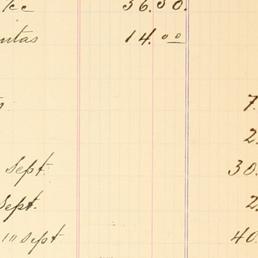 36.50.
14.00
7.
2.
Sept. 30.
Sept. 2.
" Sept 40.